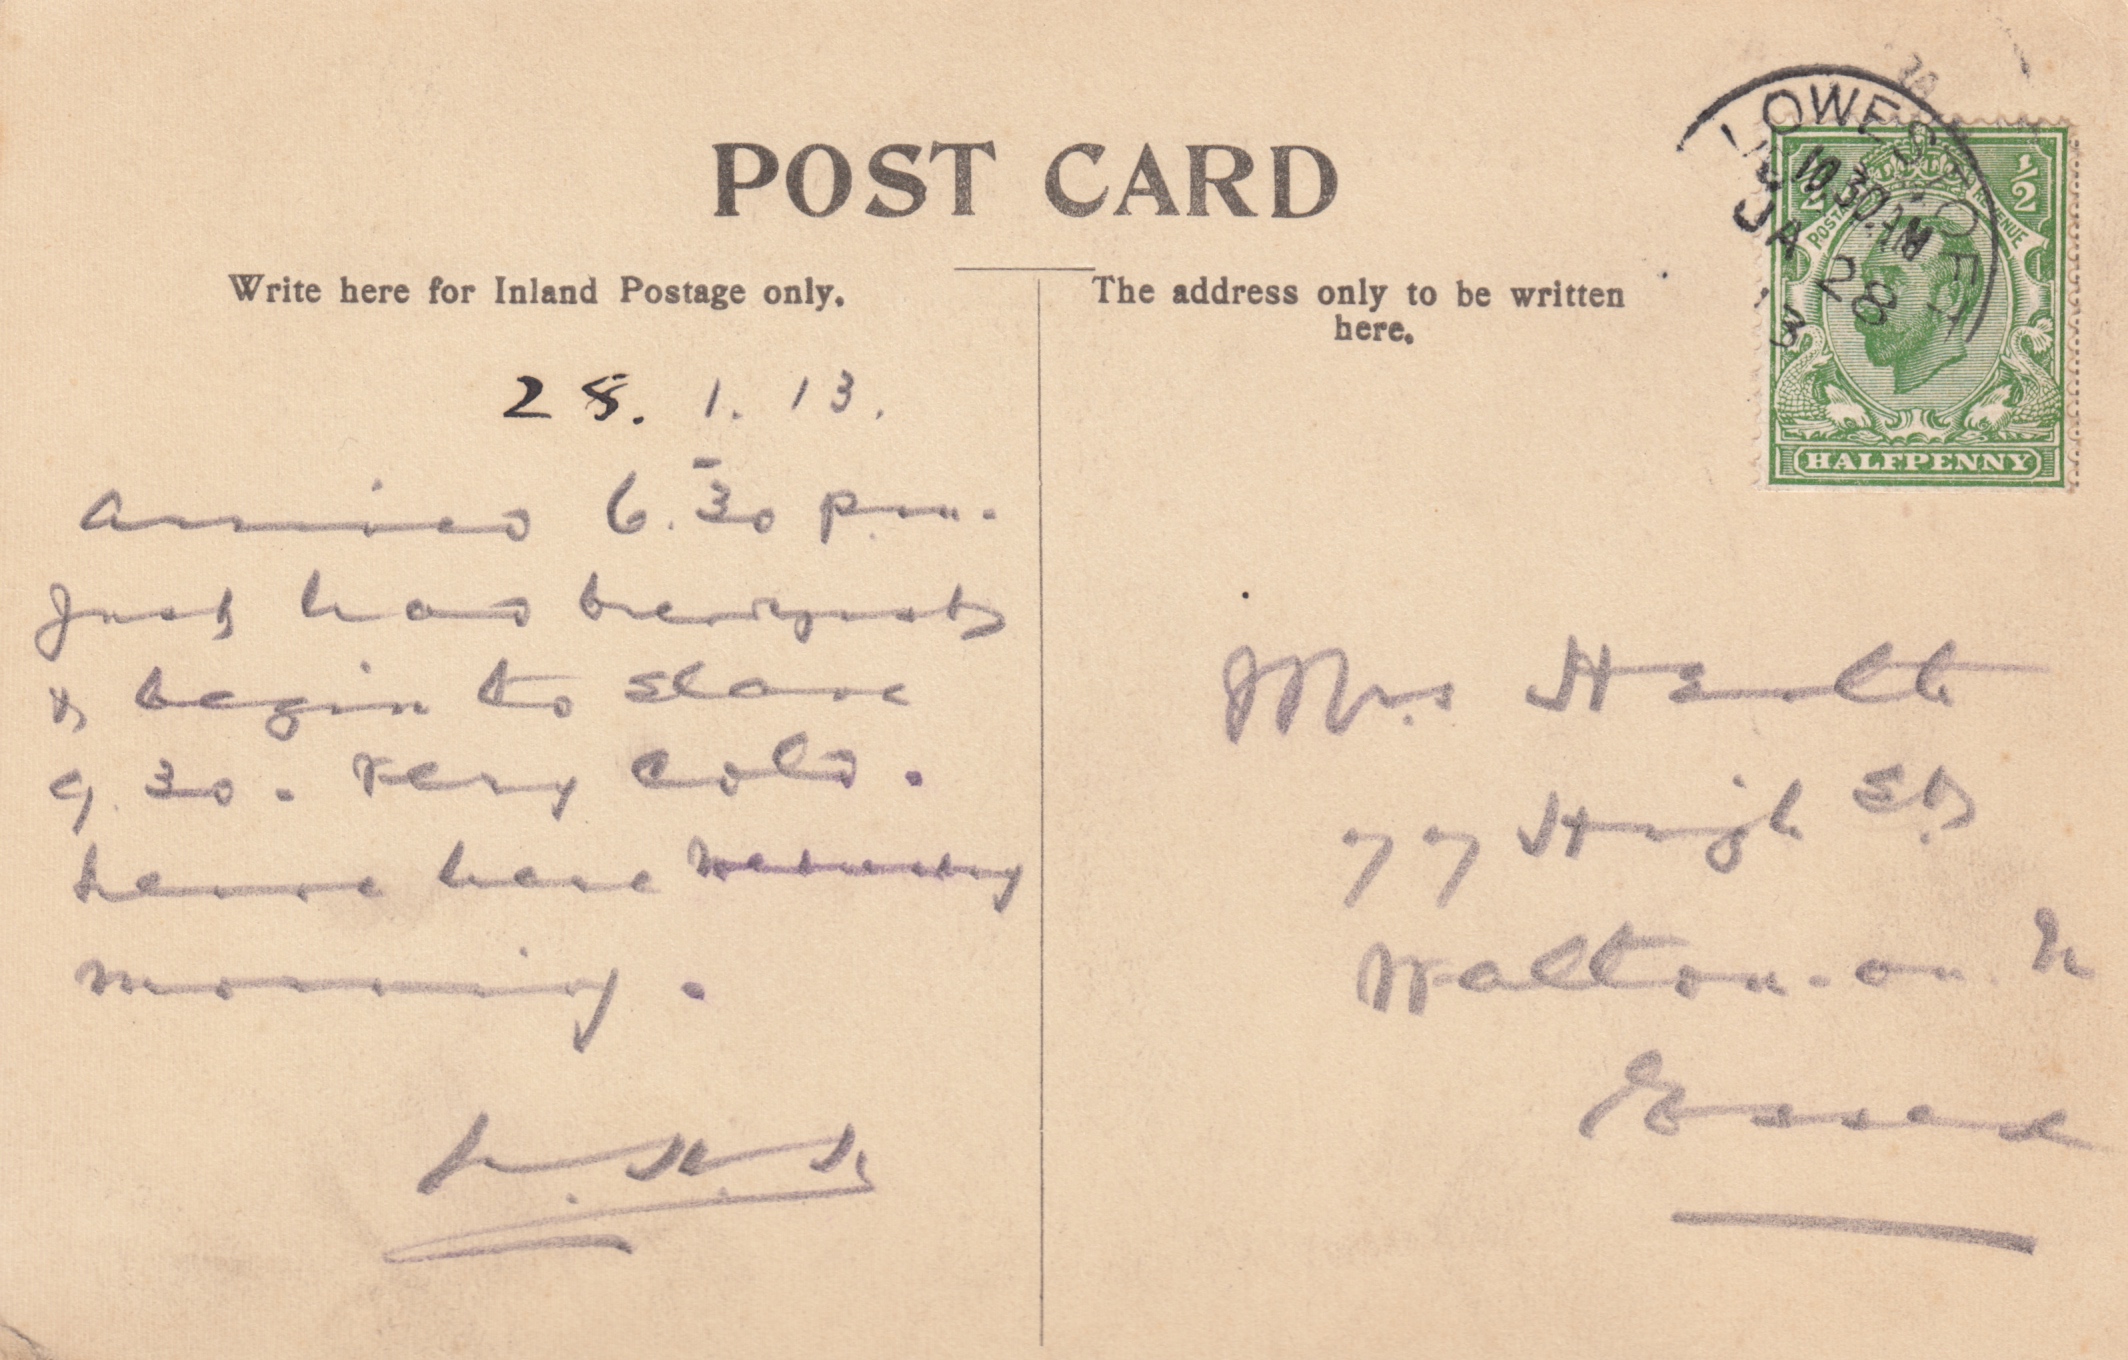 POST CARD
Write here for Inland Postage only.
The address only to be written
here.
LOWESTOFT
10.30 AM
JA 28
13
POSTAGE REVENUE
½
HALFPENNY
28. 1. 13.
Arrived 6.30 p.m.
Just had breakfast
& begin to slave
9.30. Very cold.
Leave here Wednesday
morning.
Mrs
77 High St
Walton-on-N
Essex